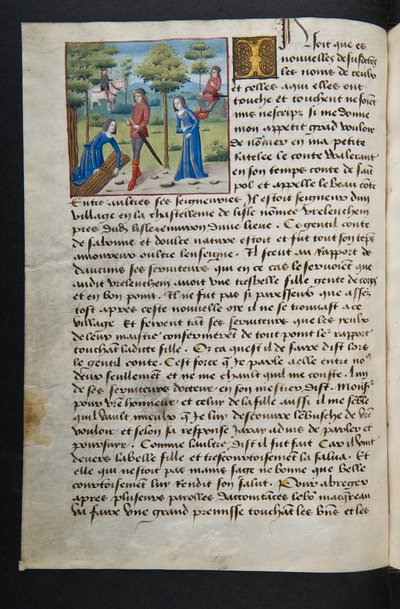 Ja soit que es
nouvelles dessusdctes
les noms de ceulx
et celles a qui elles ont
touche et touchent ne soiẽt
mis
mon appetit grãd vouloir
de nõmer en ma petite
ratelee le conte Waleran
en son temps conte de saĩt
pol et appelle le beau cõte
Entre aultres ses seigneuries Il estoit seigneur dun
village en la chastellenie de lisle nõmee Vrelenchem
pres dudt lisle environ dune lieue. Ce gentil conte
de sa bonne et doulce nature estoit et fut tout son tẽps
amoureux oultre lenseigne. Il sceut au rapport de
daucuns ses serviteurs qui en ce cas le servoiẽt que
audit Vrelenchem avoit une tresbelle fille gente de corps
et en bon point. Il ne fut pas si paresseux que asses
tost apres ceste nouvelle oye il ne se trouvast a ce
village Et firent tãt ses serviteurs que les yeulx
de leur maistre confermerẽt de tout point le rapport
touchãt ladite fille. Or ca quest il de faire dist lors
le gentil conte. Cest force q̃ Je parle a elle entre noꝰ
deux seullement et ne me chault quil me couste. Lun
de ses serviteurs docteur en son mestier dist. Monsr̃
pour vr̃e honneur et celui de la fille aussi il me sẽble
quil vault mieux q̃ Je luy descouvre lembusche de vr̃e
vouloir et selon sa response Jaray advis de parler et
poursuire. Comme laultre dist il fut fait Car il vint
devers la belle fille et trescourtoisemẽt la salua. Et
elle qui nestoit pas mains sage ne bonne que belle
courtoisement luy rendit son salut. Pour abreger
apres plusieurs parolles daccointãces le bõ macq̃reau
va faire une grand premisse touchãt les biẽs et les